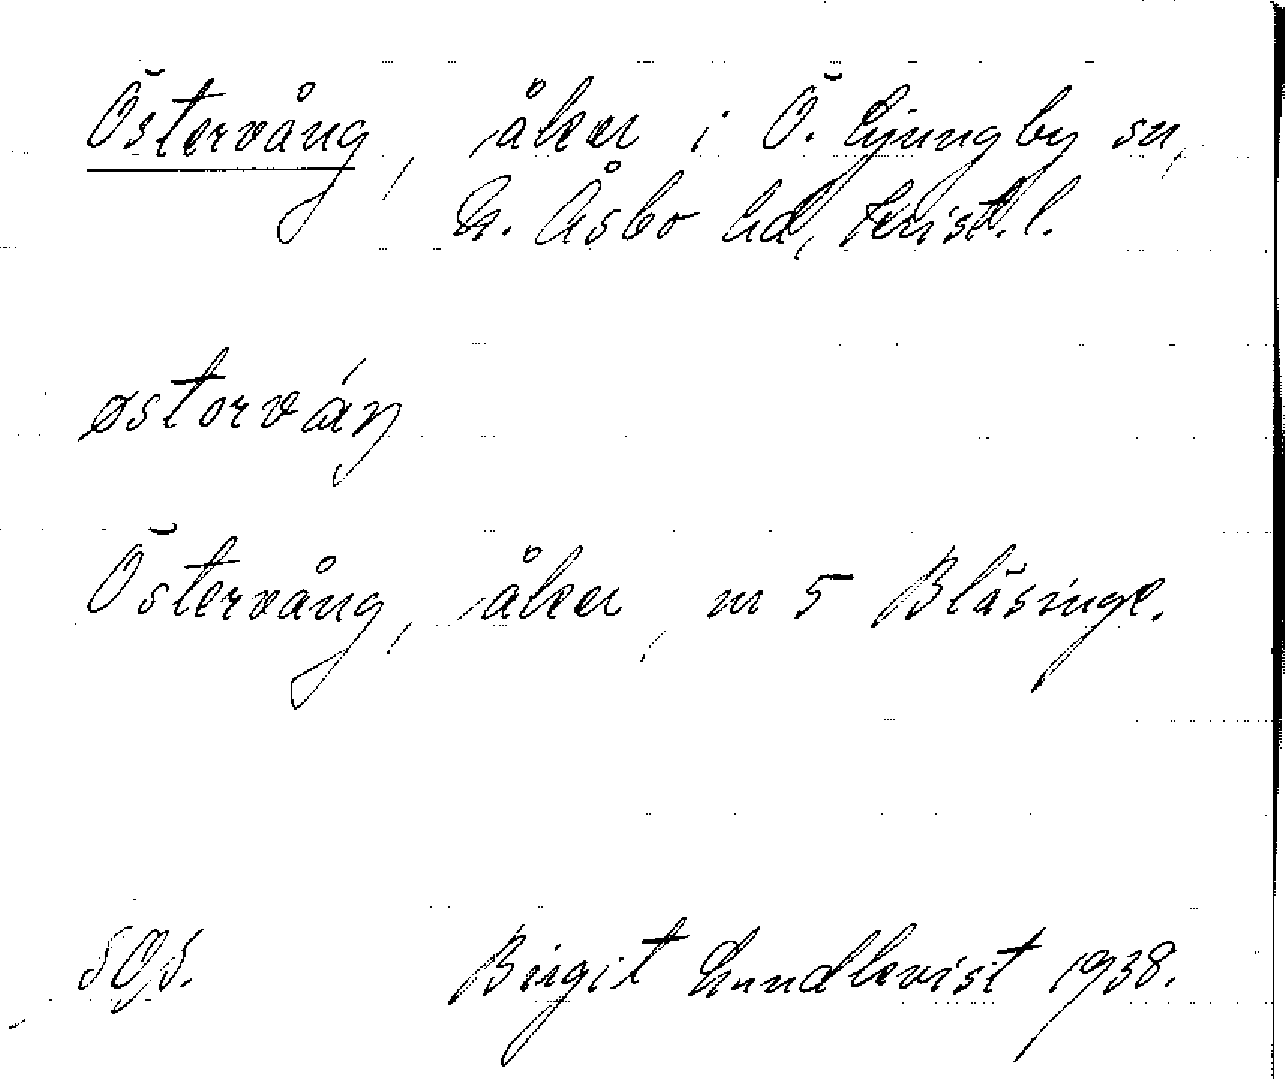 Östervång, åker i Ö. Ljungby sn,
N. Åsbo hd, Krist. l.
østorváŋ
Östervång, åker, nr 5 Blåsinge.
SOS. Birgit Lundkvist 1938.